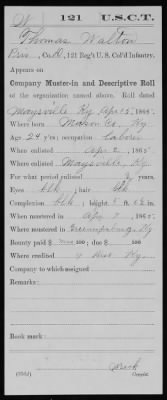 W 121 U.S.C.T.
Thomas Walton
Co. D, 121 Reg't U. S. Col'd Infantry.
Appears on
Company Muster-in and Descriptive Roll
of the organization named above. Roll dated
Maysville Ky Apr 5, 1865.
Where born Mason Co. Ky
Age 24 y'rs; occupation Laborer
When enlisted Apr 2, 1865
Where enlisted Maysville, Ky.
For what period enlisted 3 years.
Eyes blk; hair blk
Complexion blk; height 5 ft. in.
When mustered in Apr 7, 1865.
Where mustered in Greensburg, Ky
Bounty paid $ 100; due $ 100
Where credited 9 Dist Ky.
Company to which assigned
Remarks:
Book mark:
(356d) Copyist.